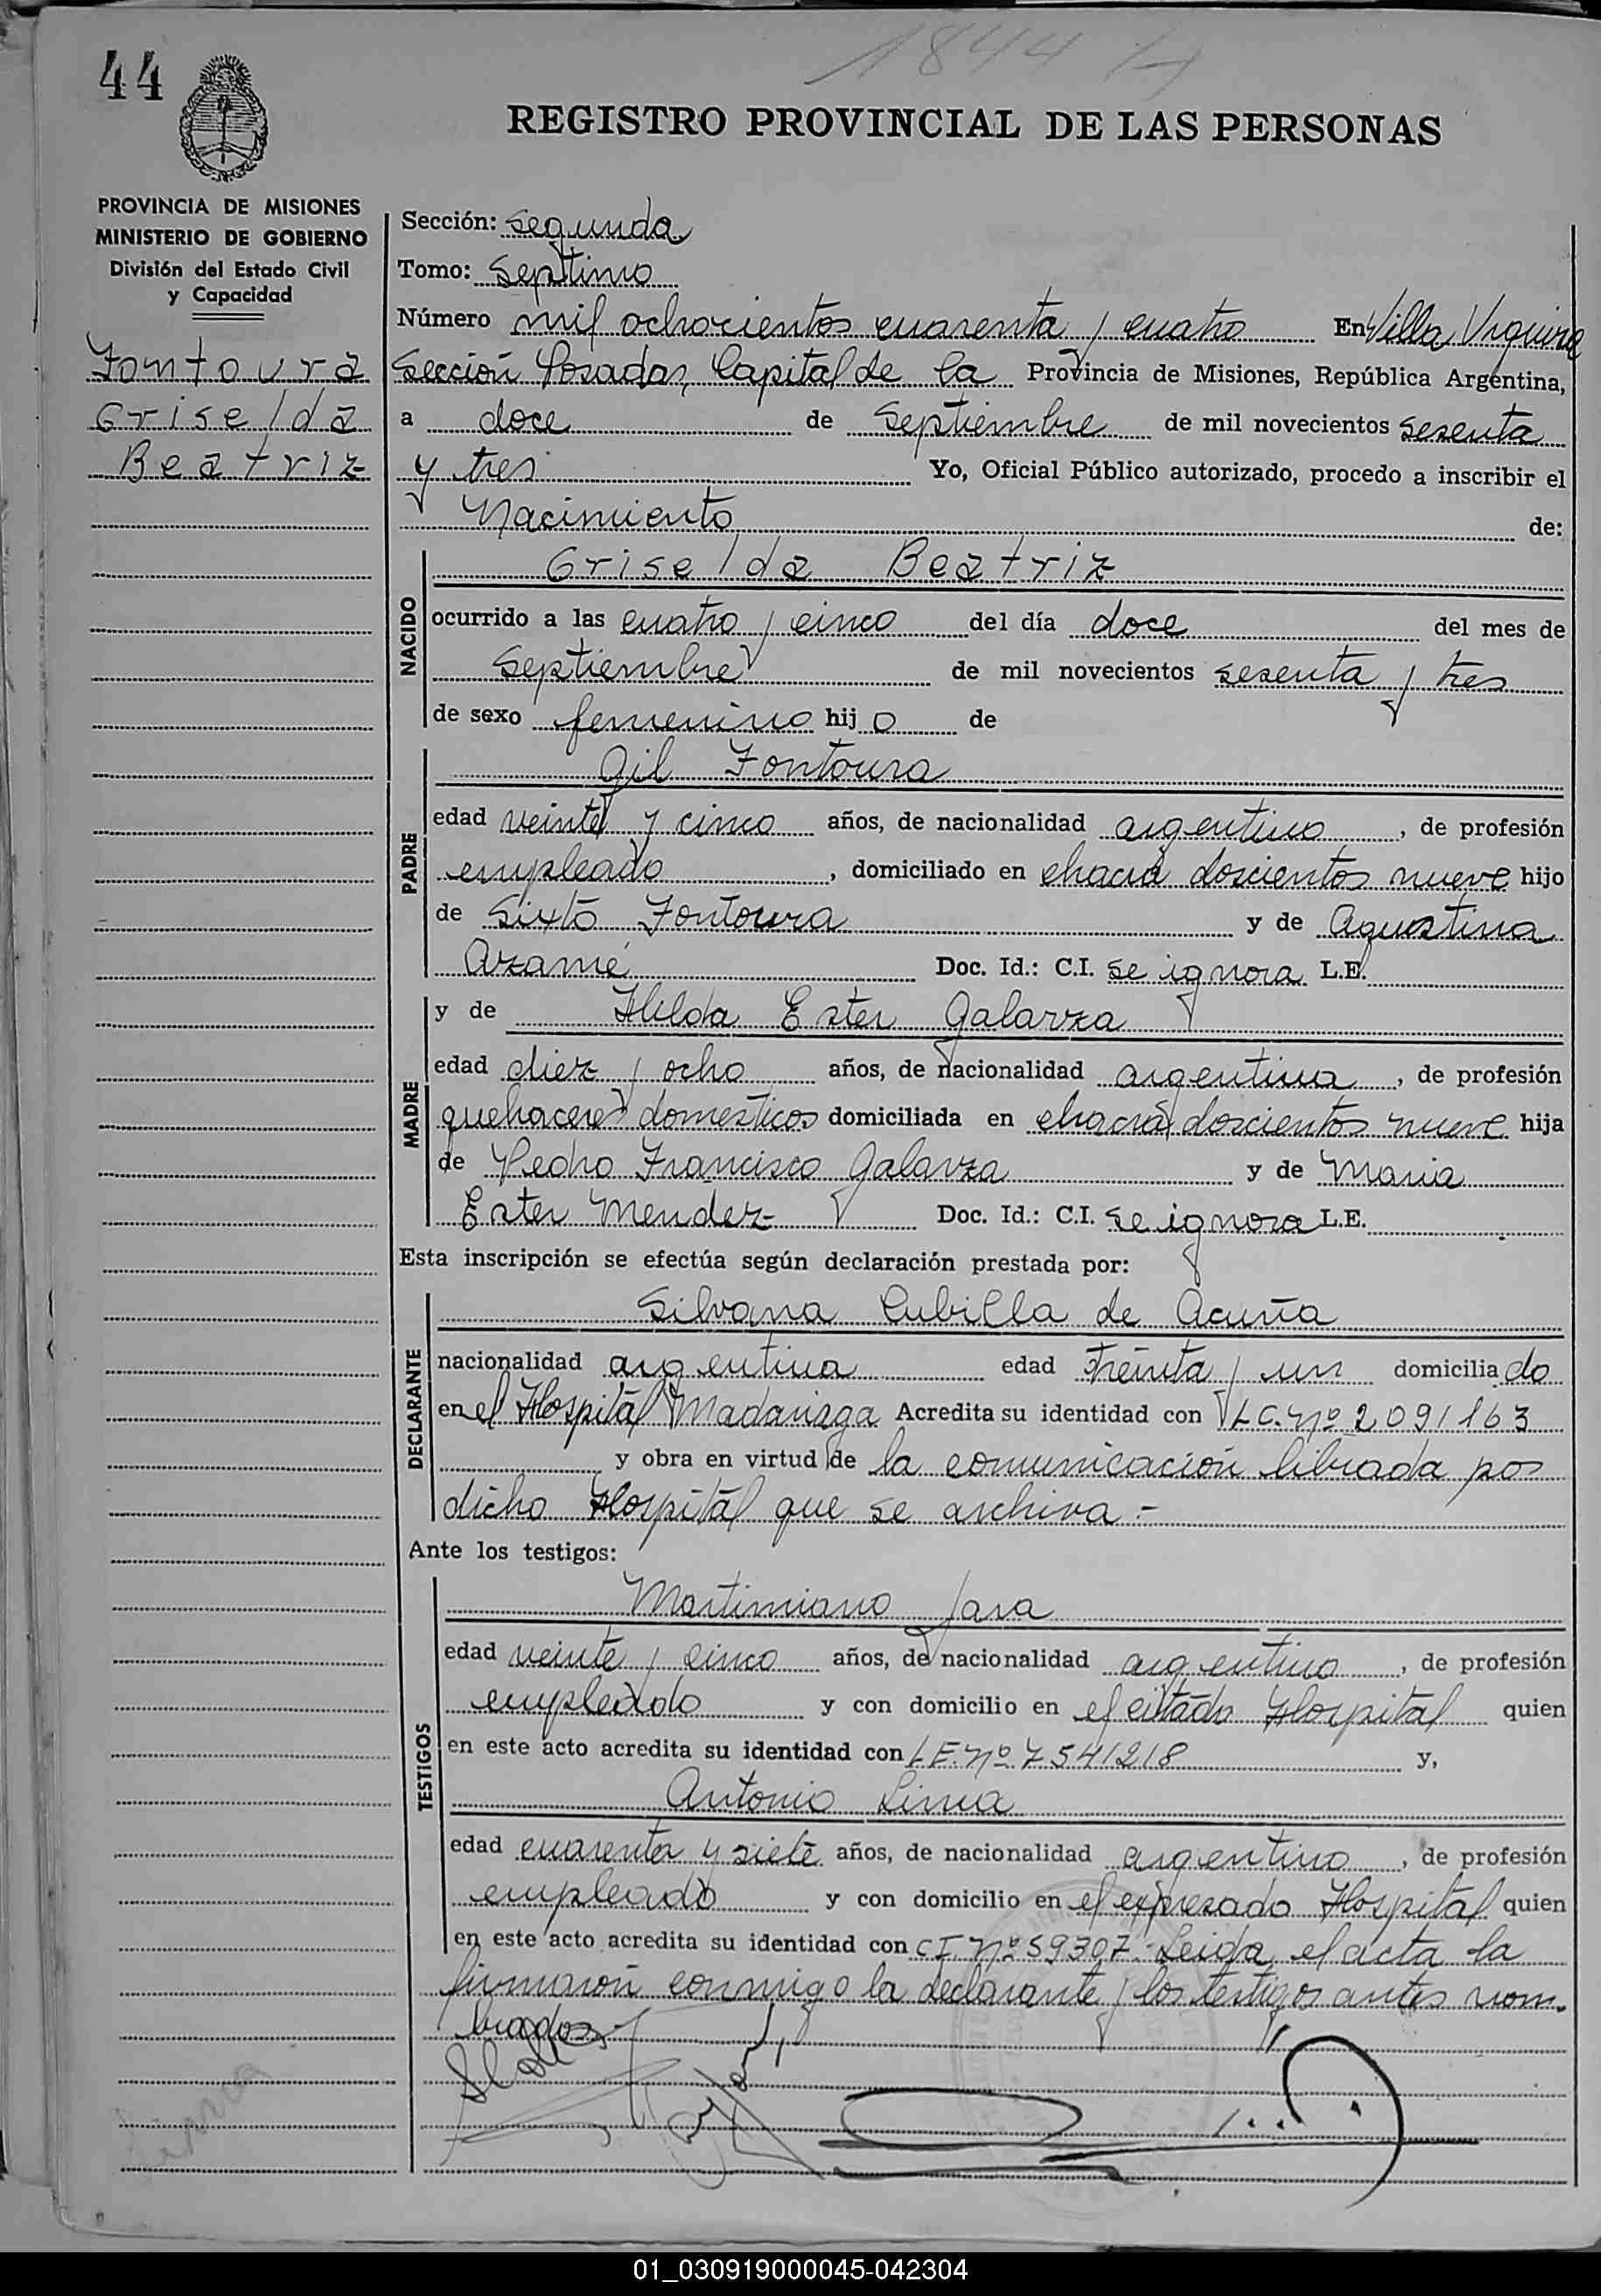 44
1844
REGISTRO PROVINCIAL DE LAS PERSONAS
PROVINCIA DE MISIONES
MINISTERIO DE GOBIERNO
División del Estado Civil
y Capacidad
Fontoura
Griselda
Beatriz
Sección: Segunda
Tomo: Septimo
Número mil ochocientos cuarenta y cuatro En Villa Urquiza
Sección Posadas, Capital de la Provincia de Misiones, República Argentina,
a doce de Septiembre de mil novecientos sesenta
y tres Yo, Oficial Público autorizado, procedo a inscribir el
Nacimiento de:
NACIDO
Griselda Beatriz
ocurrido a las cuatro y cinco del día doce del mes de
Septiembre de mil novecientos sesenta y tres
de sexo femenino hijo de
PADRE
Gil Fontoura
edad veinte y cinco años, de nacionalidad argentino, de profesión
empleado, domiciliado en chacra doscientos nueve hijo
de Sixto Fontoura y de Agustina
Azamé Doc. Id.: C.I. se ignora L.E.
MADRE
y de Hilda Ester Galarza
edad diez y ocho años, de nacionalidad argentina, de profesión
quehaceres domesticos domiciliada en chacra doscientos nueve hija
de Pedro Francisco Galarza y de Maria
Ester Mendez Doc. Id.: C.I. se ignora L.E.
Esta inscripción se efectúa según declaración prestada por:
DECLARANTE
Silvana Cubilla de Acuña
nacionalidad argentina edad treinta y un domiciliado
en el Hospital Madariaga Acredita su identidad con L.C. Nº 2091163
y obra en virtud de la comunicación librada por
dicho Hospital que se archiva.-
Ante los testigos:
TESTIGOS
Martimiano Jara
edad veinte y cinco años, de nacionalidad argentino, de profesión
empleado y con domicilio en el citado Hospital quien
en este acto acredita su identidad con L.E. Nº 7541218 y,
Antonio Lima
edad cuarenta y siete años, de nacionalidad argentino, de profesión
empleado y con domicilio en el expresado Hospital quien
en este acto acredita su identidad con C.I. Nº 59307. Leida el acta la
firmaron conmigo la declarante y los testigos antes nom-
brados
01_030919000045-042304